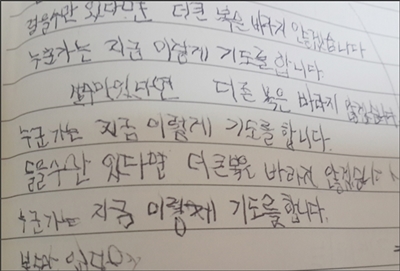 걸을수만 있다면 더큰 복은 바라지 않겠습니다
누군가는 지금 이렇게 기도를 합니다.
설수만있다면 더큰 복은 바라지 않겠습니다
누군가는 지금 이렇게 기도를 합니다.
들을수만 있다면 더큰복은 바라지 않겠습니다
누군가는 지금 이렇게 기도를 합니다.